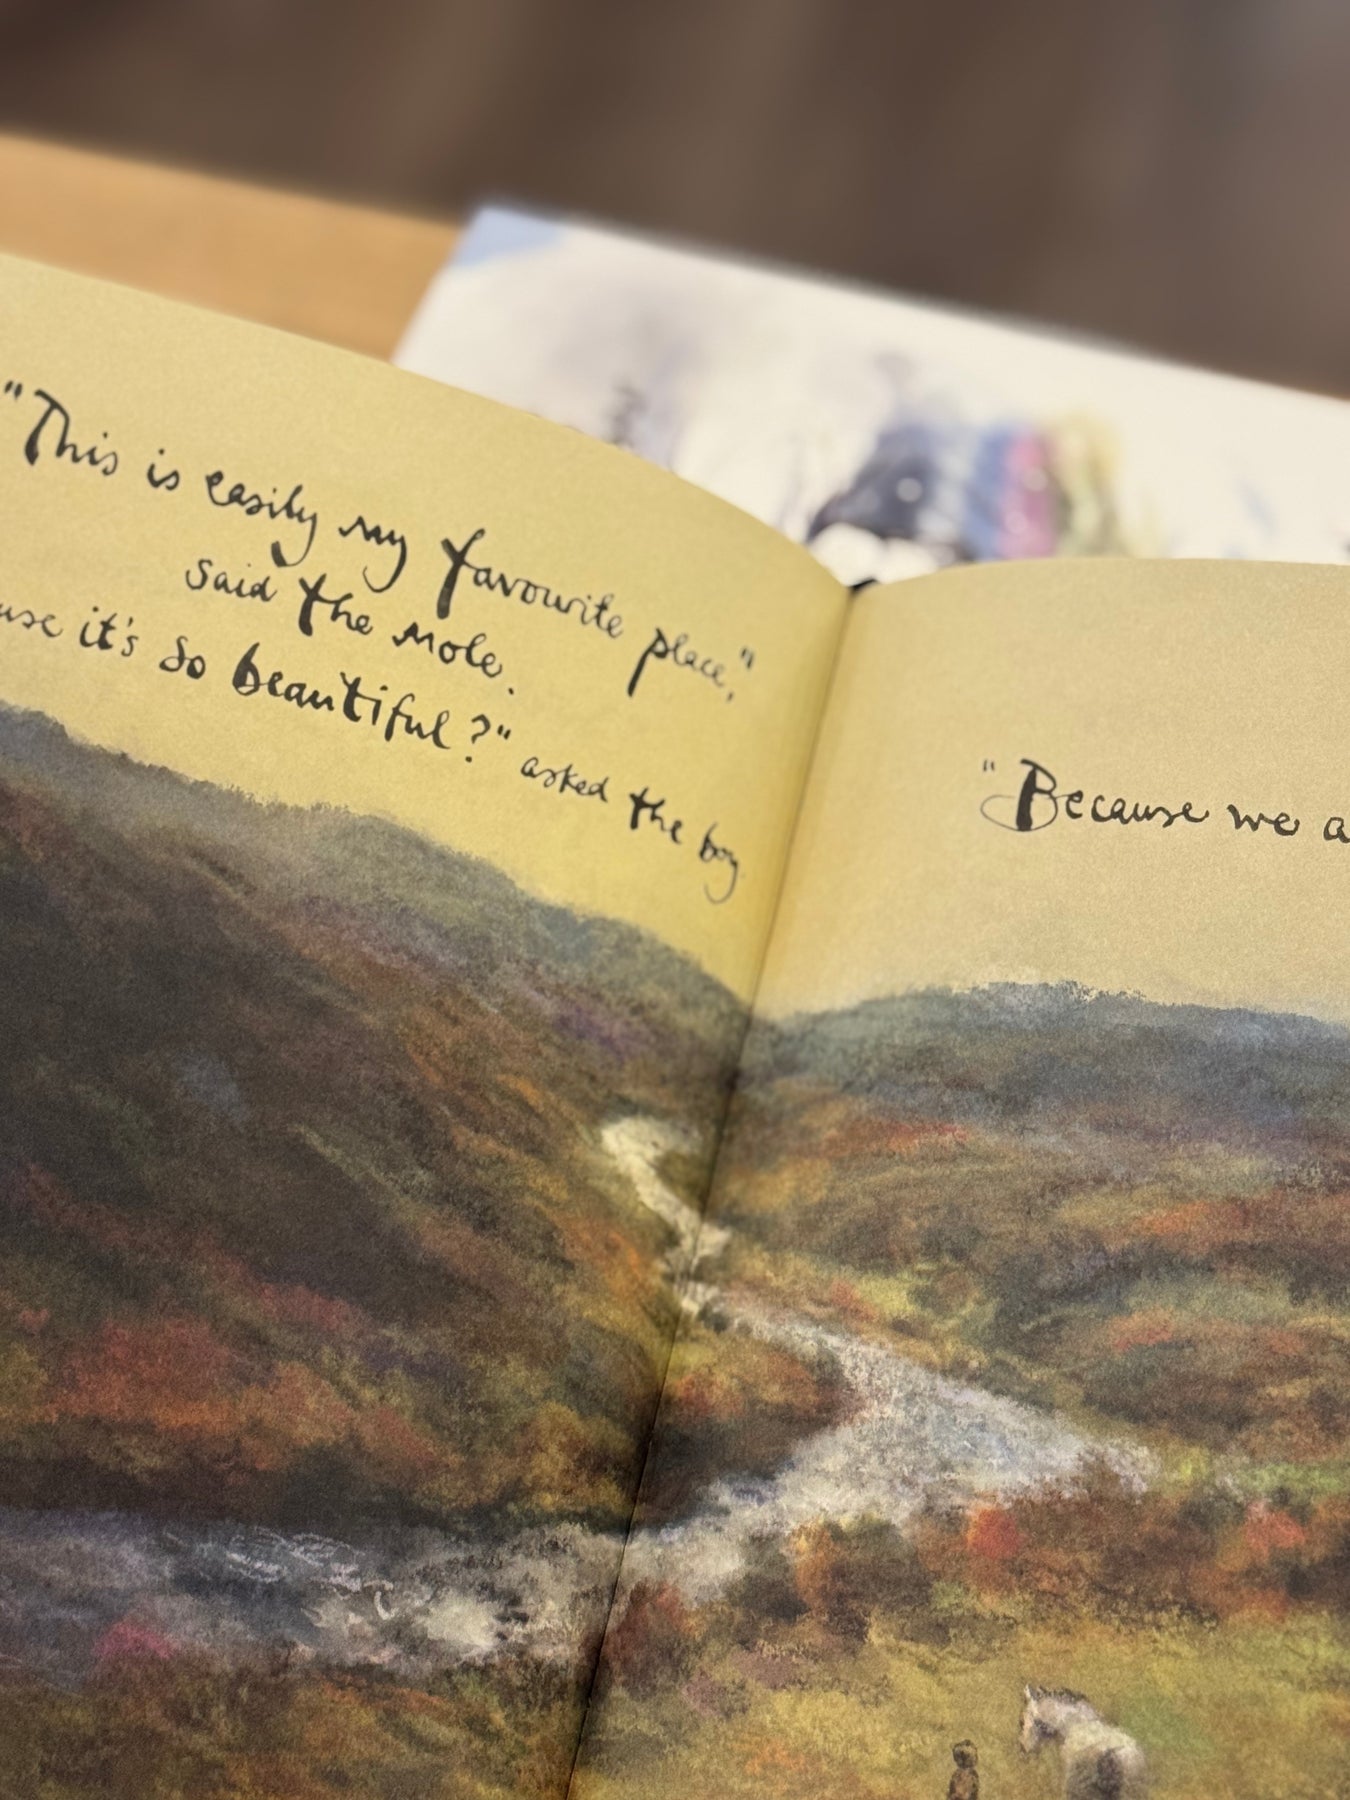 "This is easily my favourite place,"
said the mole.
it's so beautiful?" asked the boy.
"Because we